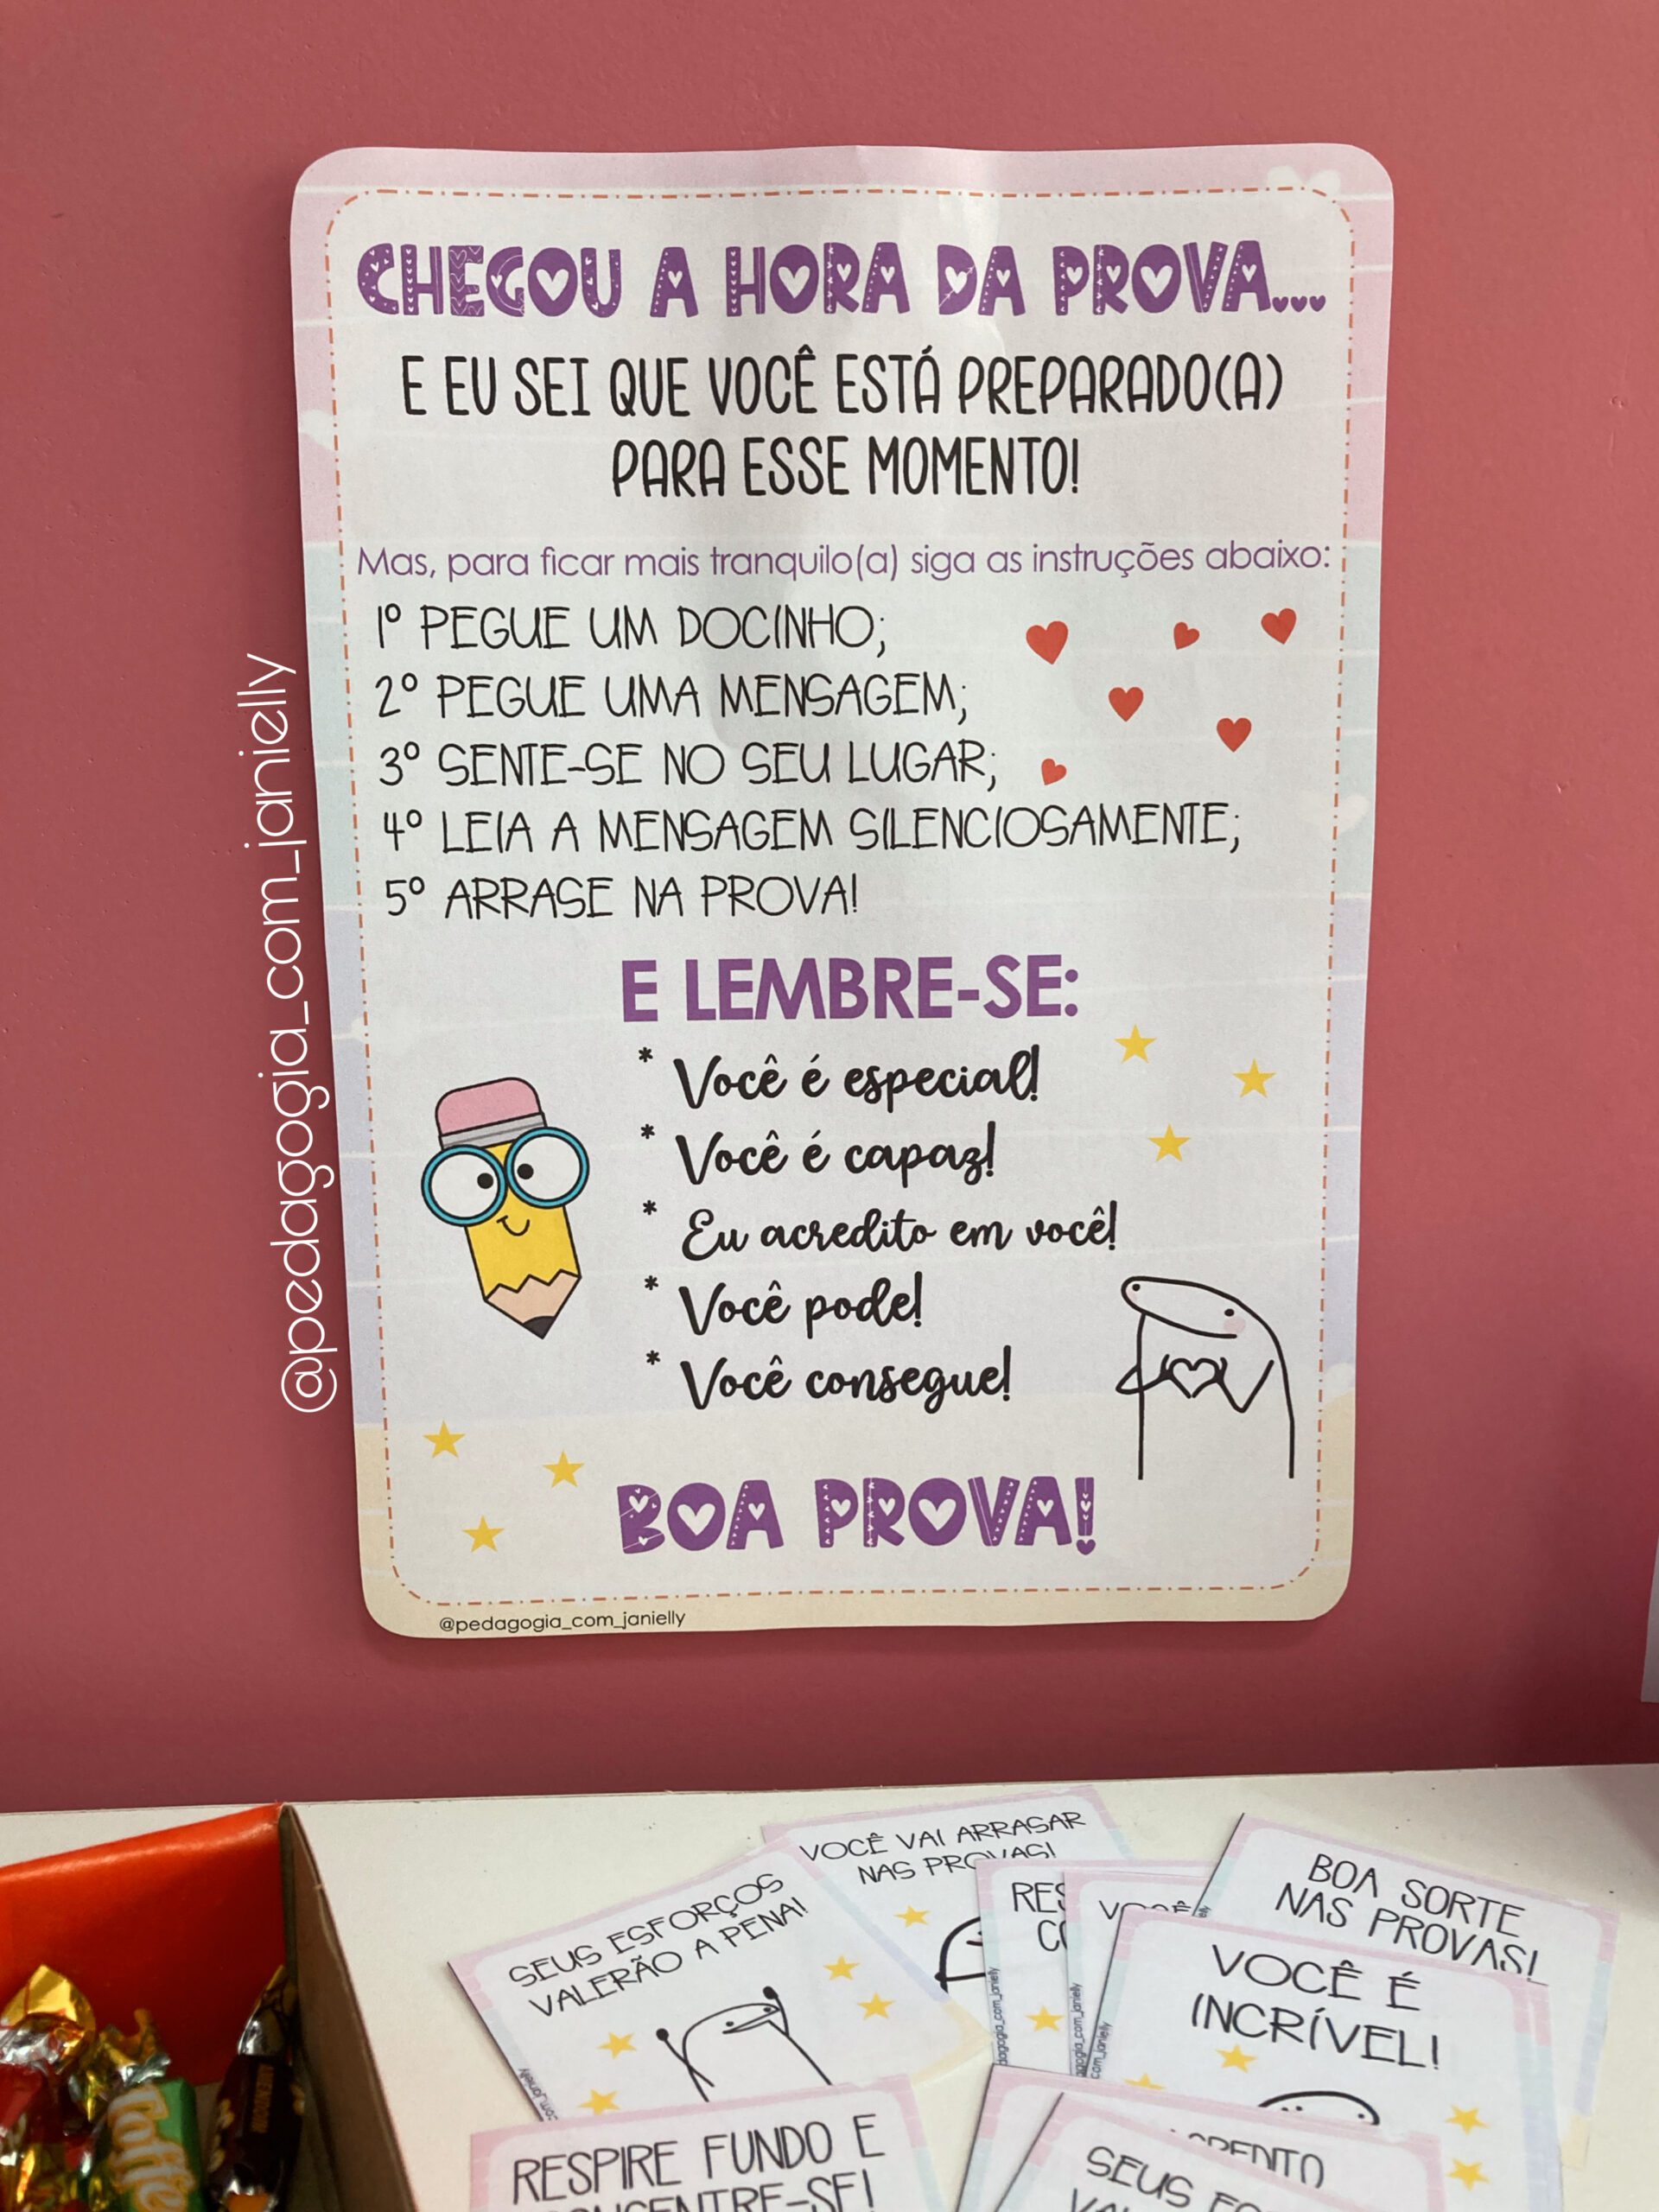 CHEGOU A HORA DA PROVA...
E EU SEI QUE VOCÊ ESTÁ PREPARADO(A)
PARA ESSE MOMENTO!
Mas, para ficar mais tranquilo(a) siga as instruções abaixo:
1º PEGUE UM DOCINHO;
2º PEGUE UMA MENSAGEM;
3º SENTE-SE NO SEU LUGAR;
4º LEIA A MENSAGEM SILENCIOSAMENTE;
5º ARRASE NA PROVA!
E LEMBRE-SE:
* Você é especial!
* Você é capaz!
* Eu acredito em você!
* Você pode!
* Você consegue!
BOA PROVA!
@pedagogia_com_janielly
@pedagogia_com_janielly
VOCÊ VAI ARRASAR
NAS PROVAS!
SEUS ESFORÇOS
VALERÃO A PENA!
BOA SORTE
NAS PROVAS!
VOCÊ
VOCÊ É
INCRÍVEL!
RESPIRE FUNDO E
CONCENTRE-SE!
SEUS
Toffe